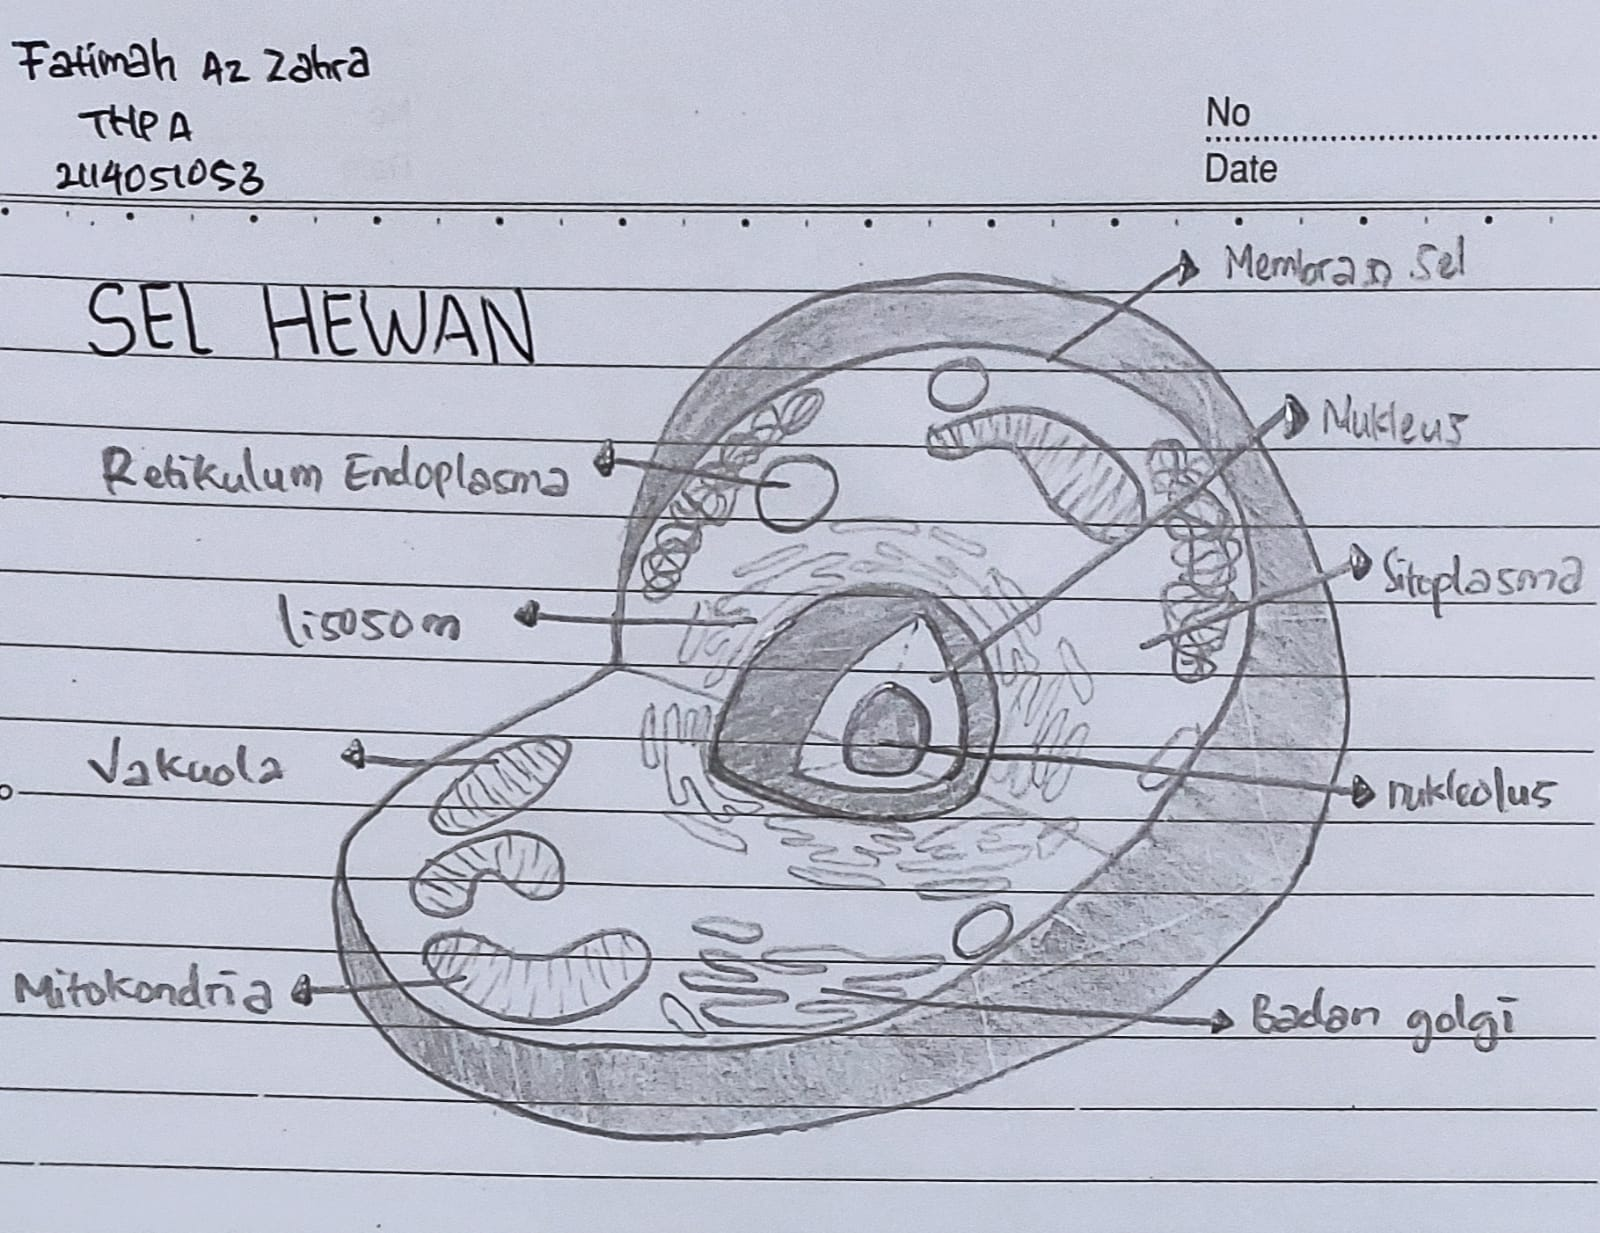 Fatimah Az Zahra
THP A
2114051053
No
Date
SEL HEWAN
Membran Sel
Nukleus
Retikulum Endoplasma
Sitoplasma
lisosom
Vakuola
nukleolus
Mitokondria
Badan golgi